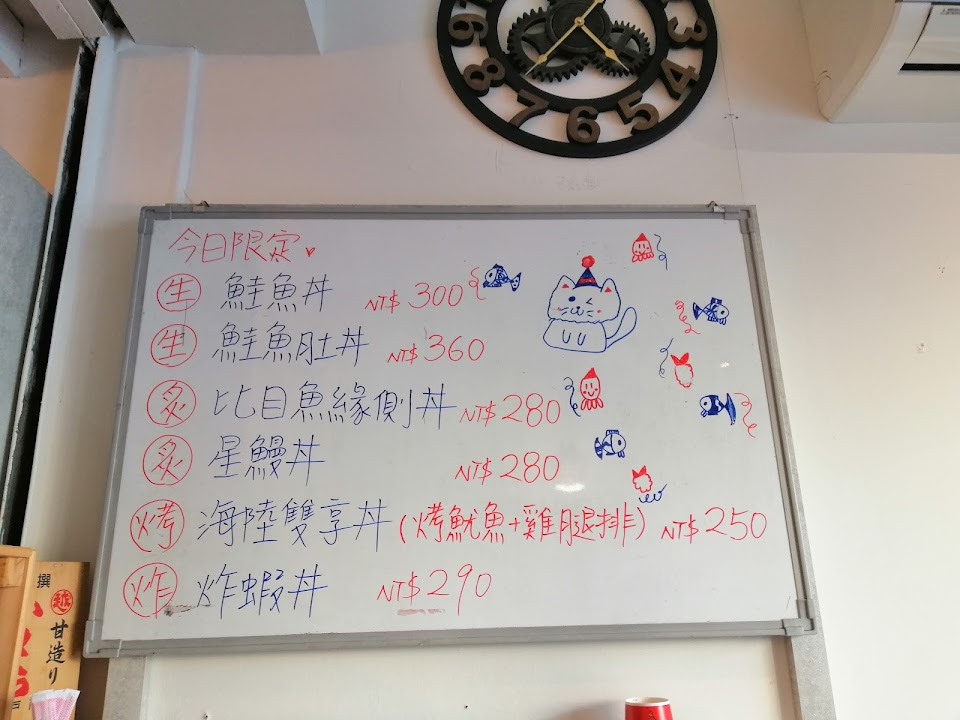 3
4
5
6
7
8
9
今日限定
生 鮭魚丼 NT$ 300
生 鮭魚肚丼 NT$ 360
炙 比目魚緣側丼 NT$ 280
炙 星鰻丼 NT$ 280
烤 海陸雙享丼 (烤魷魚+雞腿排) NT$ 250
炸 炸蝦丼 NT$ 290
撰
甘造り